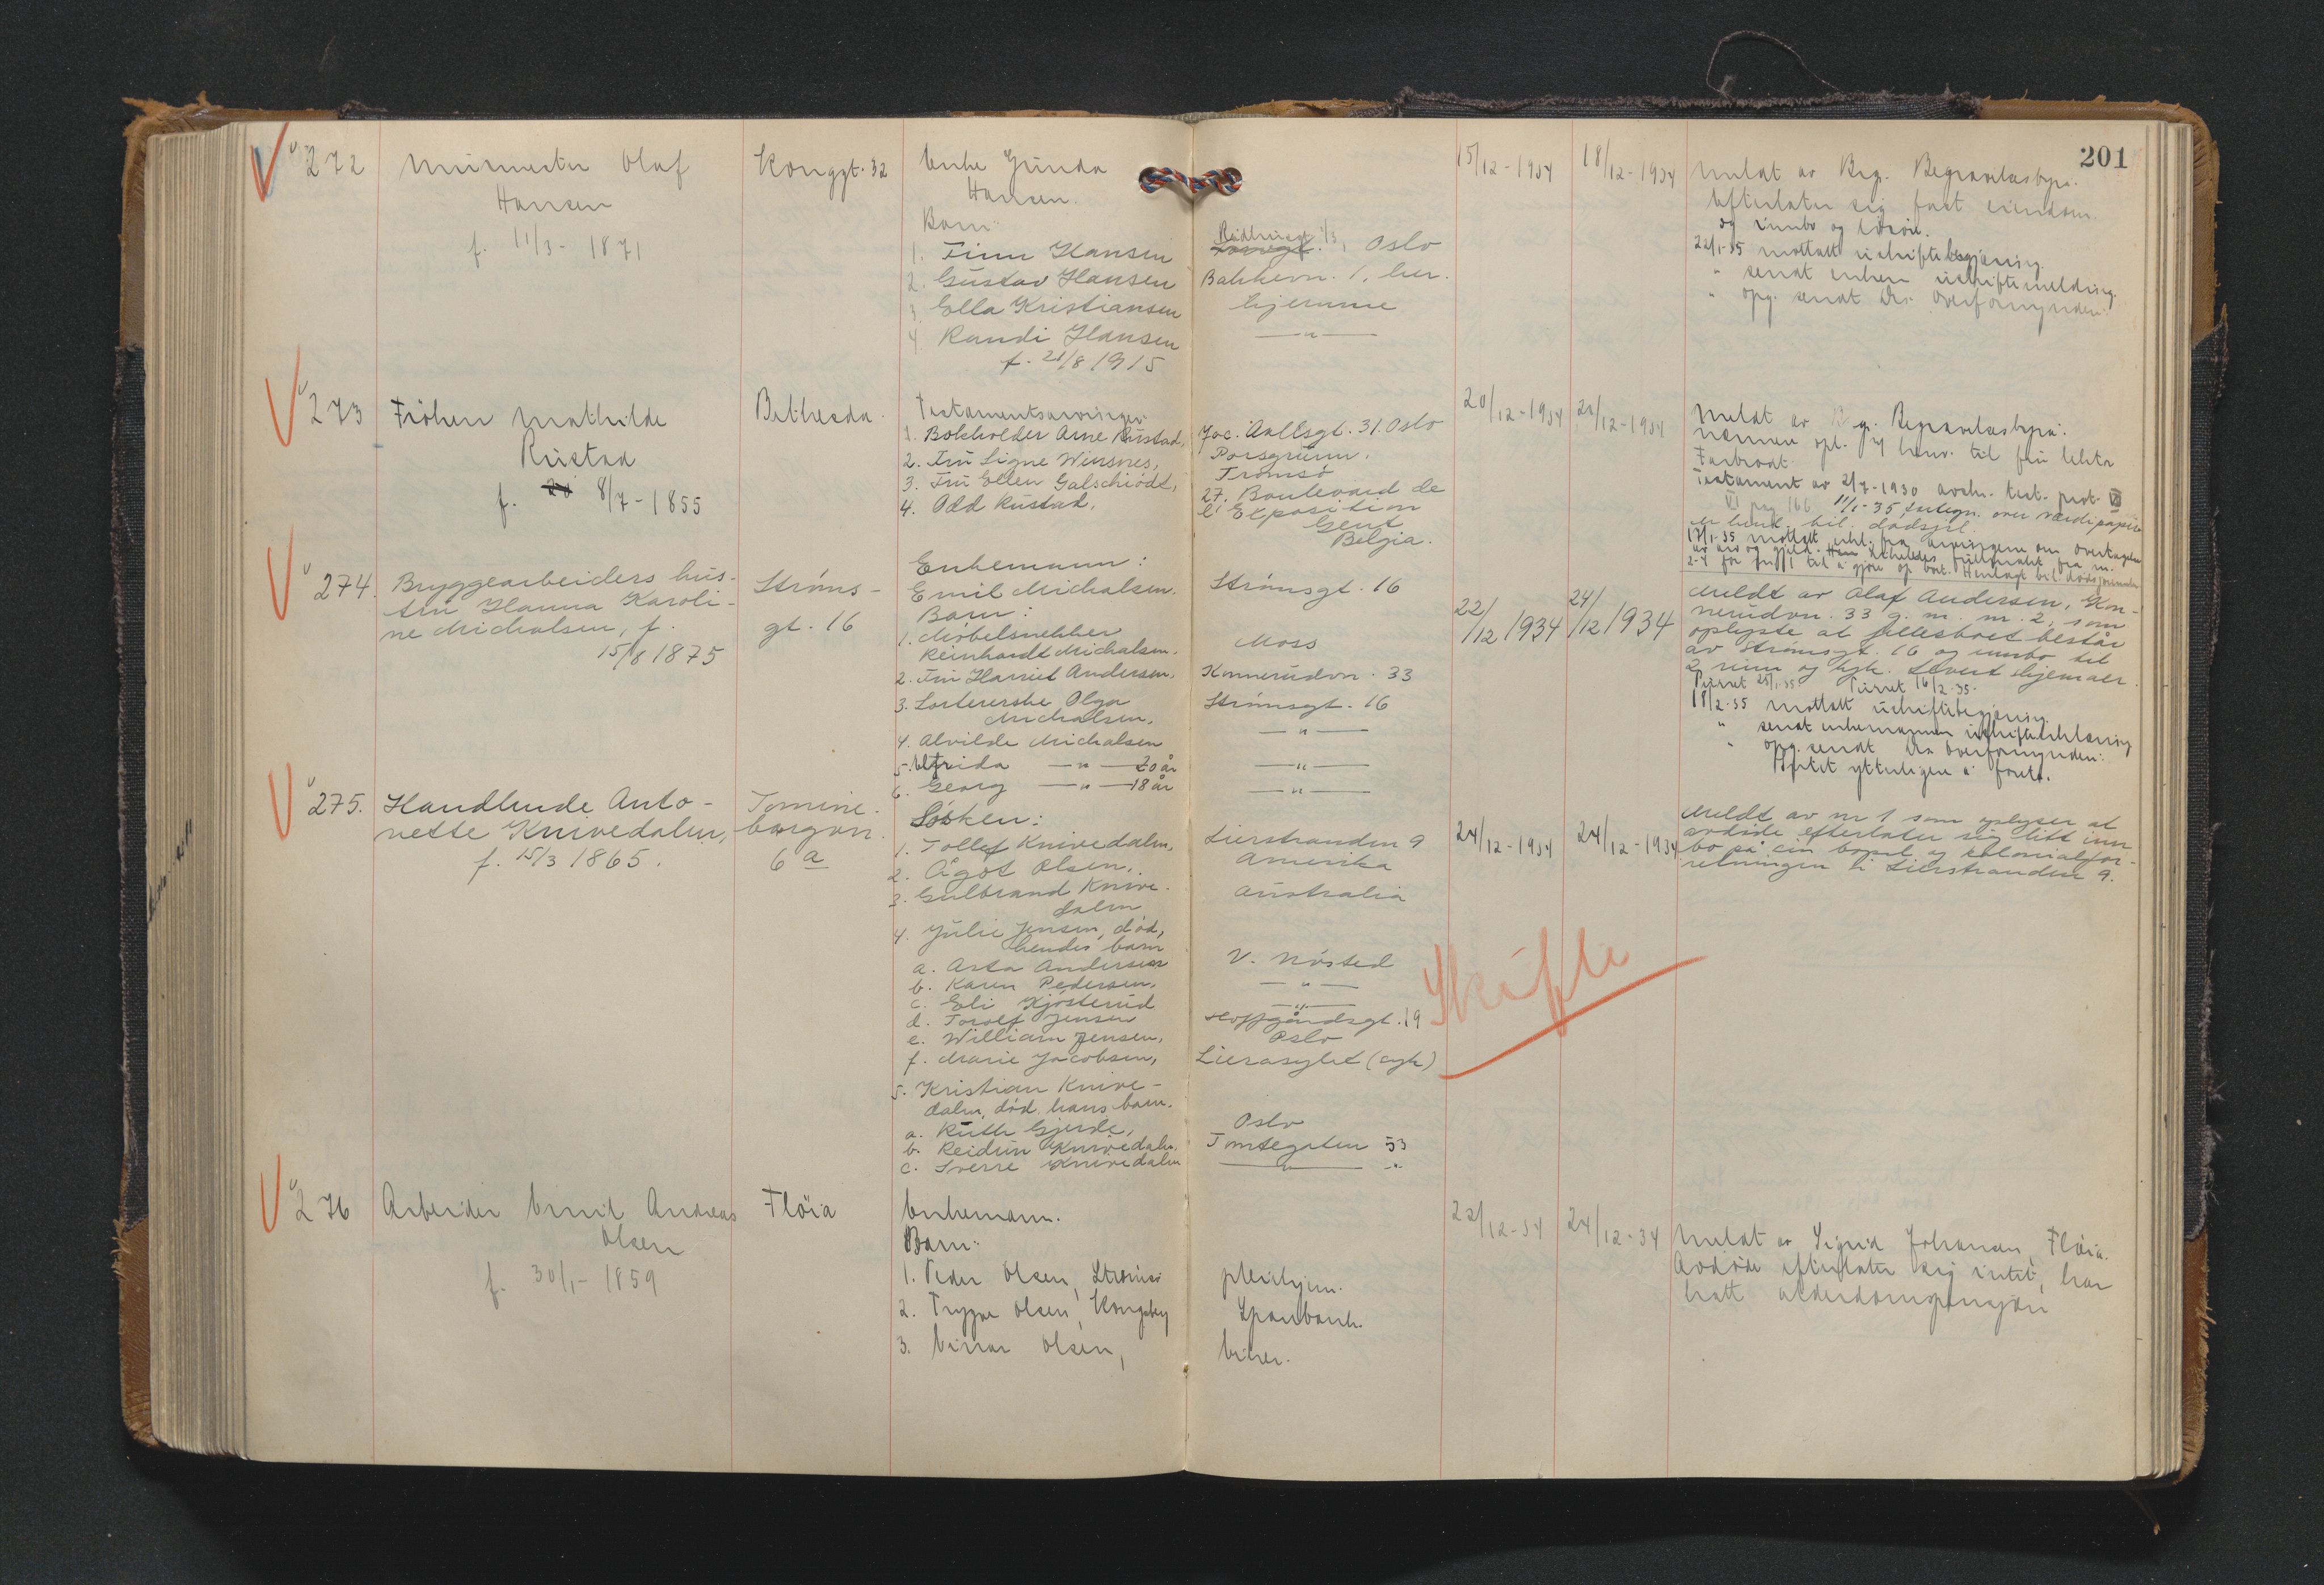 201
272
Murmester Olaf
Hansen
f. 11/3 - 1871
Konggt. 32
Enke Gunda
Hansen.
Barn:
1. Finn Hansen
Oslo
2. Gustav Hansen
Bakkevn. 1, her.
3. Ella Kristiansen
hjemme
4. Randi Hansen
— " —
f. 21/8 1915
15/12 - 1934
18/12 - 1934
Meldt av Brg. Begravelsesbyrå.
Efterlater sig fast eiendom
og innbo og løsøre.
22/1-35 mottatt uskiftebegjæring.
" sendt enken uskiftemelding.
" opg. sendt Dr. overformynderi.
273
Frøken Mathilde
Rustad
f. 8/7 - 1855
Bethesda.
Testamentsarvinger:
1. Bokholder Arne Rustad,
Jac. Aallsgt. 31. Oslo
2. Fru Signe Winsnes,
Porsgrunn.
3. Fru Ellen Galschiødt,
Tromsø
4. Odd Rustad.
27. Boulevard de
l'Exposition
Gent
Belgia.
20/12 - 1934
21/12 - 1934
Meldt av Brg. Begravelsesbyrå.
Testament av 2/7-1930
VI pag 166 11/1-35 fortegn. over verdipapirer
274.
Bryggearbeiders hus-
tru Hanna Karoli-
ne Michalsen, f.
15/8 1875
Strøms-
gt. 16
Enkemann:
Emil Michalsen.
Strømsgt. 16
Barn:
1. Møbelsnekker
Reinhardt Michalsen.
Moss
2. Fru Harriet Andersen.
Konnerudvn. 33
3. Sortererske Olga
Michalsen.
Strømsgt. 16
4. Alvilde Michalsen
— " —
5. Alfrida — " — 20 år
— " —
6. Georg — " — 18 år
— " —
22/12 1934
24/12 1934
Meldt av Olaf Andersen, Kon-
nerudvn. 33 g. m. nr. 2, som
oplyste at fellesboet består
av Strømsgt. 16 og innbo til
2 rum og kjk. Levert skjemaer.
Purret 25/1-35 Purret 16/2-35.
18/2-35 mottatt uskiftebegjæring.
" sendt enkemannen uskifteerklæring
" opg. sendt Dr. Overformynderi.
Intet ytterligere å foreta.
275.
Handlende Anto-
nette Knivedalen,
f. 15/3 1865.
Tomine-
borgvn.
6 a
Søsken:
1. Tollef Knivedalen,
Lierstranden 9
2. Ågot Olsen,
Amerika
3. Gulbrand Knive-
dalen
Australia
4. Julie Jensen, død,
hendes barn
a. Asta Andersen
V. Nøsted
b. Karen Pedersen,
— " —
c. Eli Kjøsterud
— " —
d. Torolf Jensen
Hoffgårdsgt. 19
e. William Jensen,
Oslo
f. Marie Jacobsen,
Lierasylet (syk)
5. Kristian Knive-
dalen, død, hans barn.
a. Ruth Gjerde,
Oslo
b. Reidun Knivedalen.
Tomtegaten 53
c. Sverre Knivedalen
— " — "
24/12 - 1934
24/12 - 1934
Meldt av nr 1 som oplyser at
avdøde efterlater sig litt inn-
bo på sin bopel og kolonialfor-
retningen i Lierstranden 9.
Skifte
276
Arbeider Emil Andreas
Olsen
f. 30/1 - 1859
Fløia
Enkemann.
Barn:
1. Peder Olsen, Strømsø
pleiehjem.
2. Trygve Olsen, Kongsberg
Sparebank.
3. Einar Olsen,
22/12 - 34
24/12 - 34
Meldt av Sigrid Johansen, Fløia.
Avdøde efterlater sig intet, har
hatt alderdomspensjon